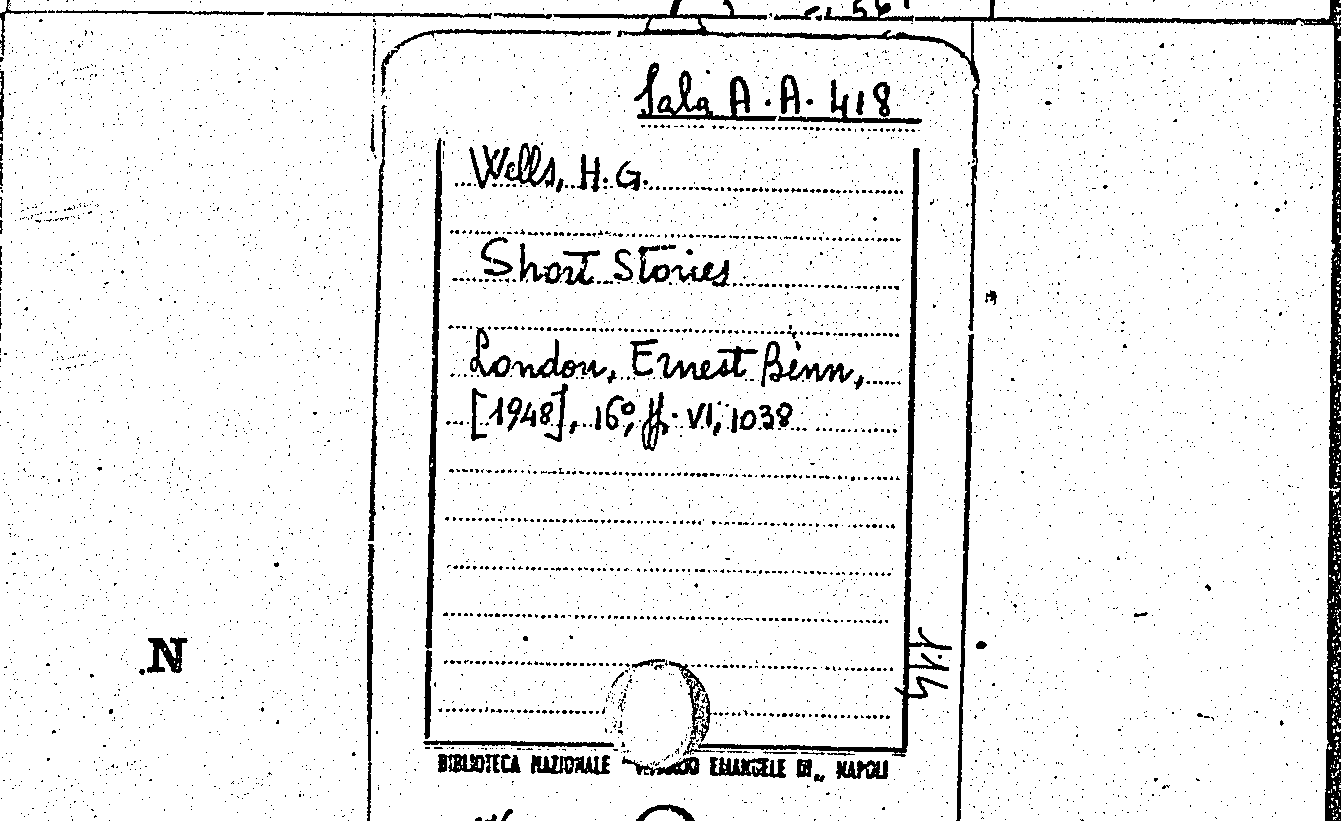 Sala A.A. 418
Wells, H.G.
Short Stories
London, Ernest Benn,
[1948], 16°, ff. VI, 1038
N
BIBLIOTECA NAZIONALE EMANUELE III„ NAPOLI